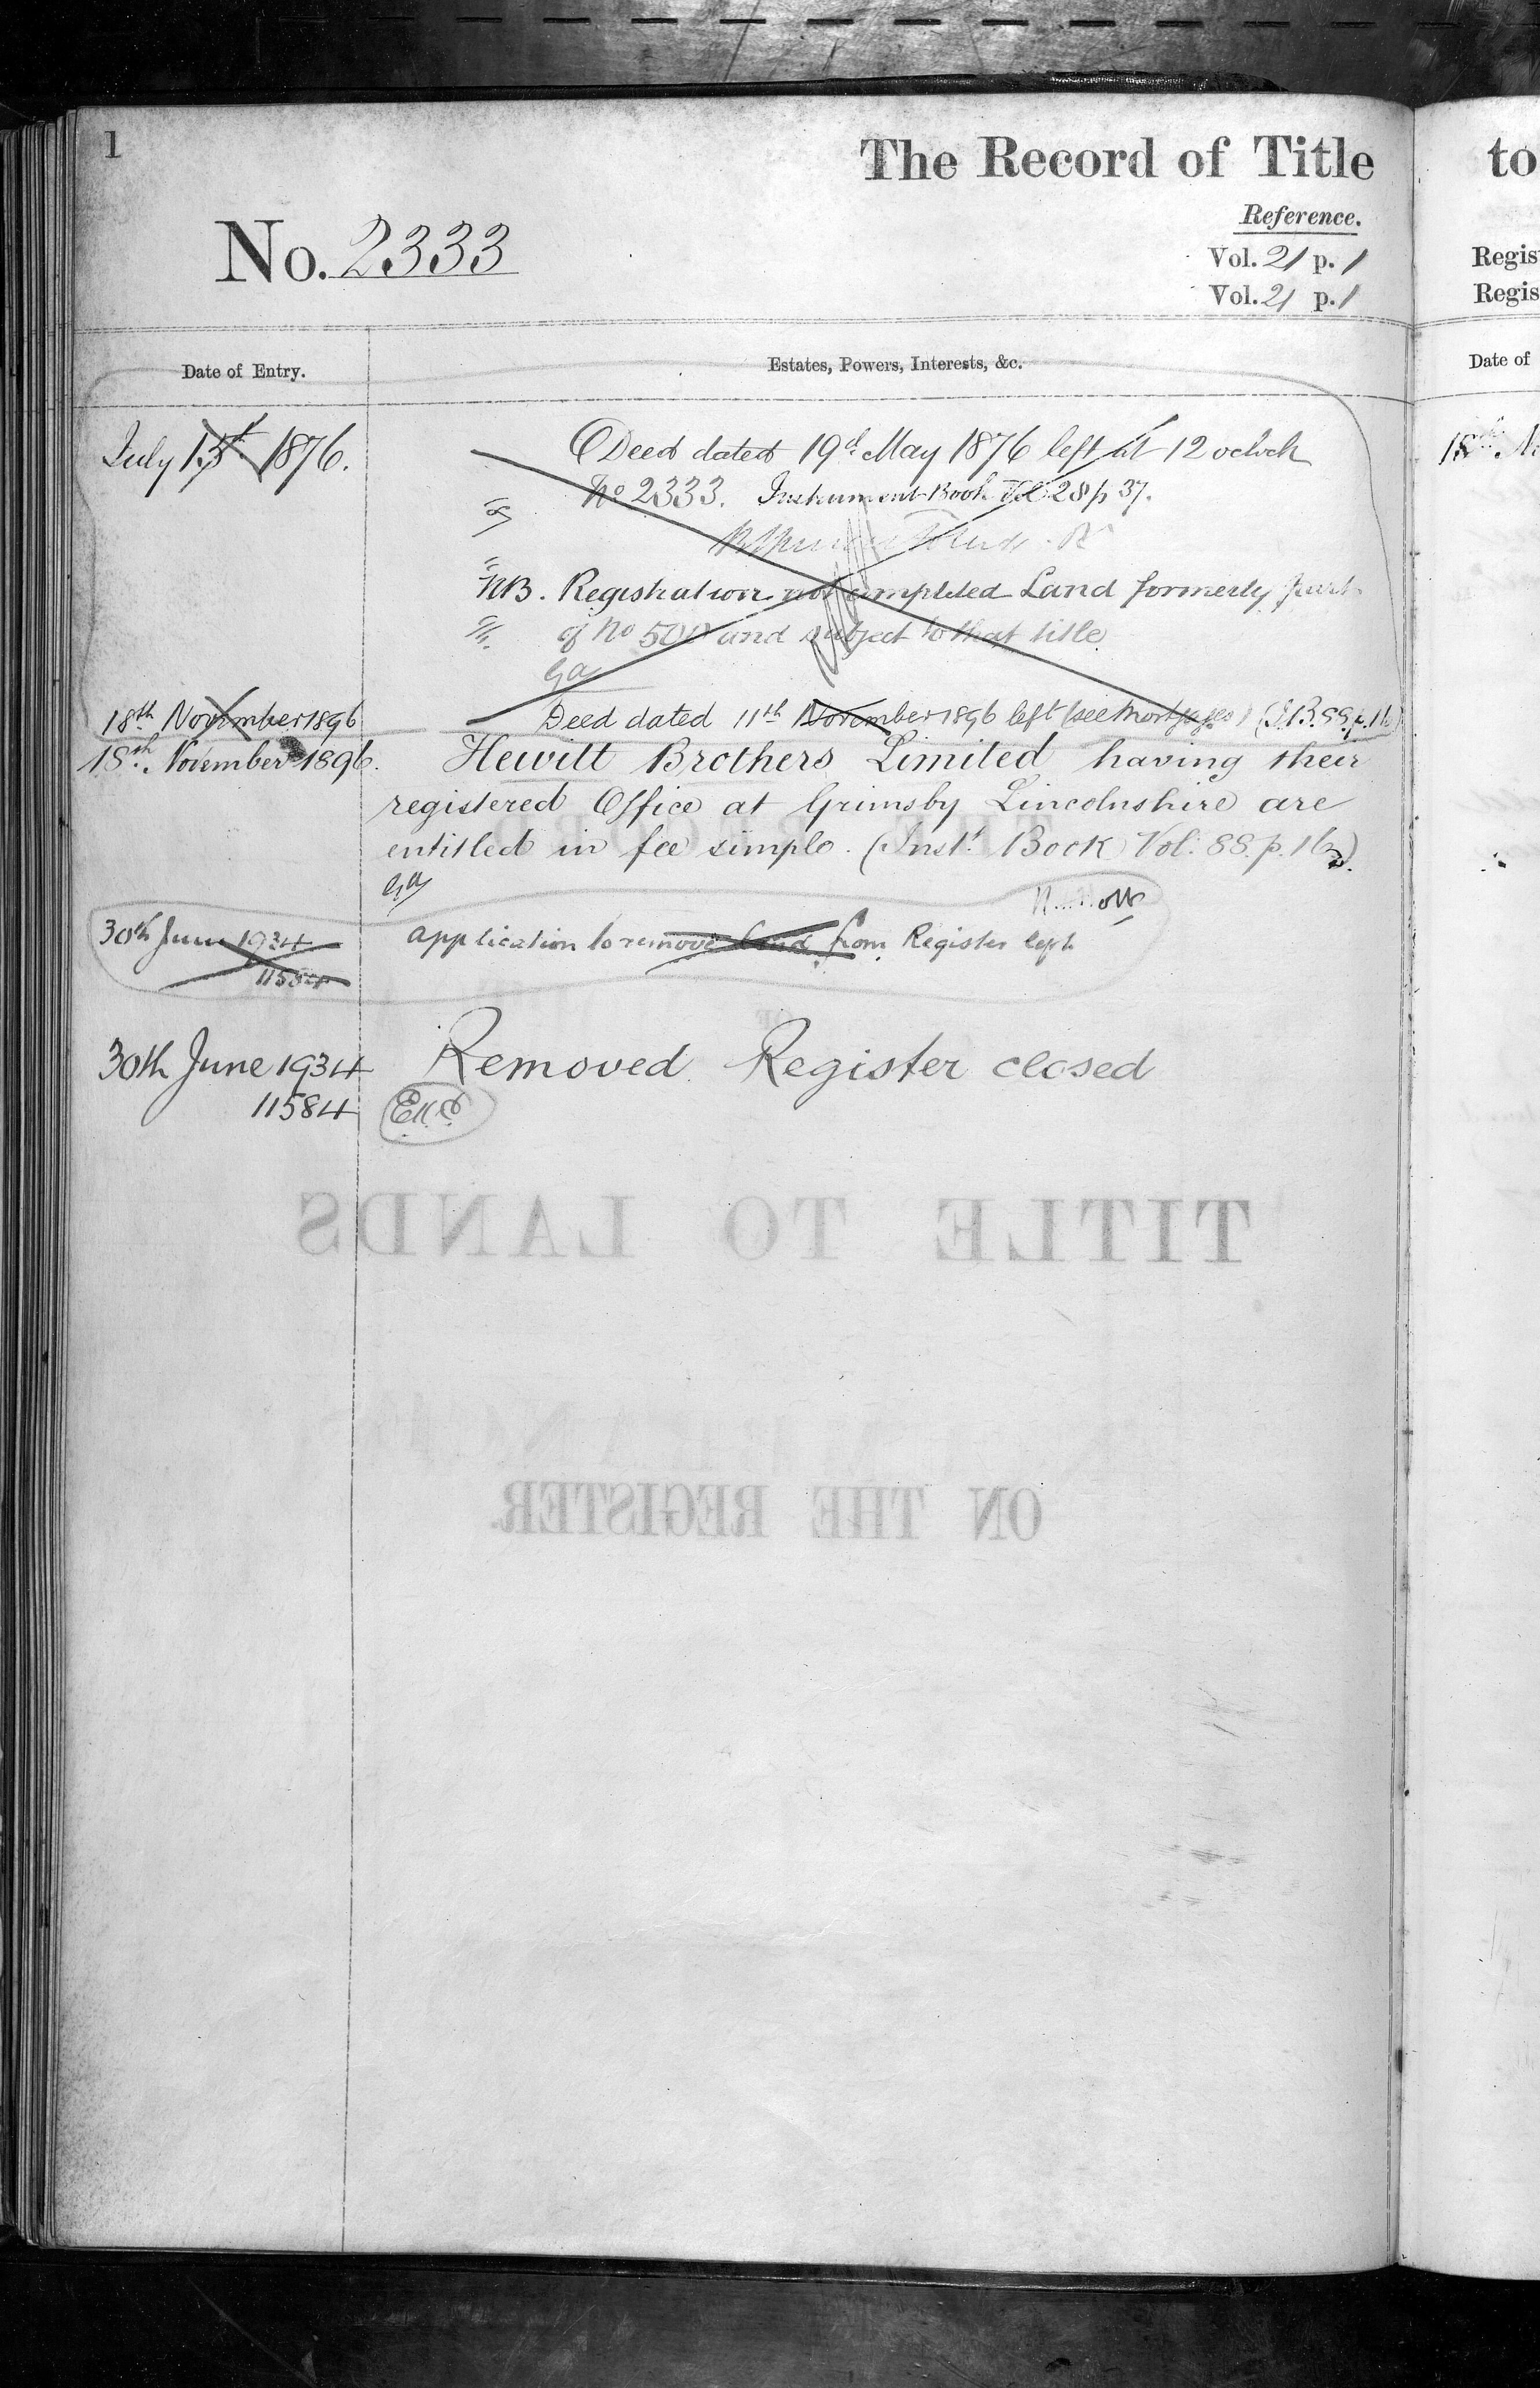 1
The Record of Title
to
Reference.
No. 2333
Vol. 21 p. 1
Regis
Vol. 21 p. 1
Regis
Date of Entry.
Estates, Powers, Interests, &c.
Date of
July 13th 1876.
Deed dated 19th May 1876 left at 12 oclock
No 2333. Instrument Book Vol 28 p 37.
NB. Registration not completed Land formerly part
of No 500 and subject to that title
Ga
18th November 1896
Deed dated 11th November 1896 left (see Mortgages) (I.B. 88. p. 16)
18th November 1896.
Hewitt Brothers Limited having their
registered Office at Grimsby Lincolnshire are
entitled in fee simple. (Inst. Book Vol: 88. p. 16.)
Ga
30th June 1934
application to remove land from Register left
11584
30th June 1934
Removed. Register closed
11584
TITLE TO LANDS
ON THE REGISTER.